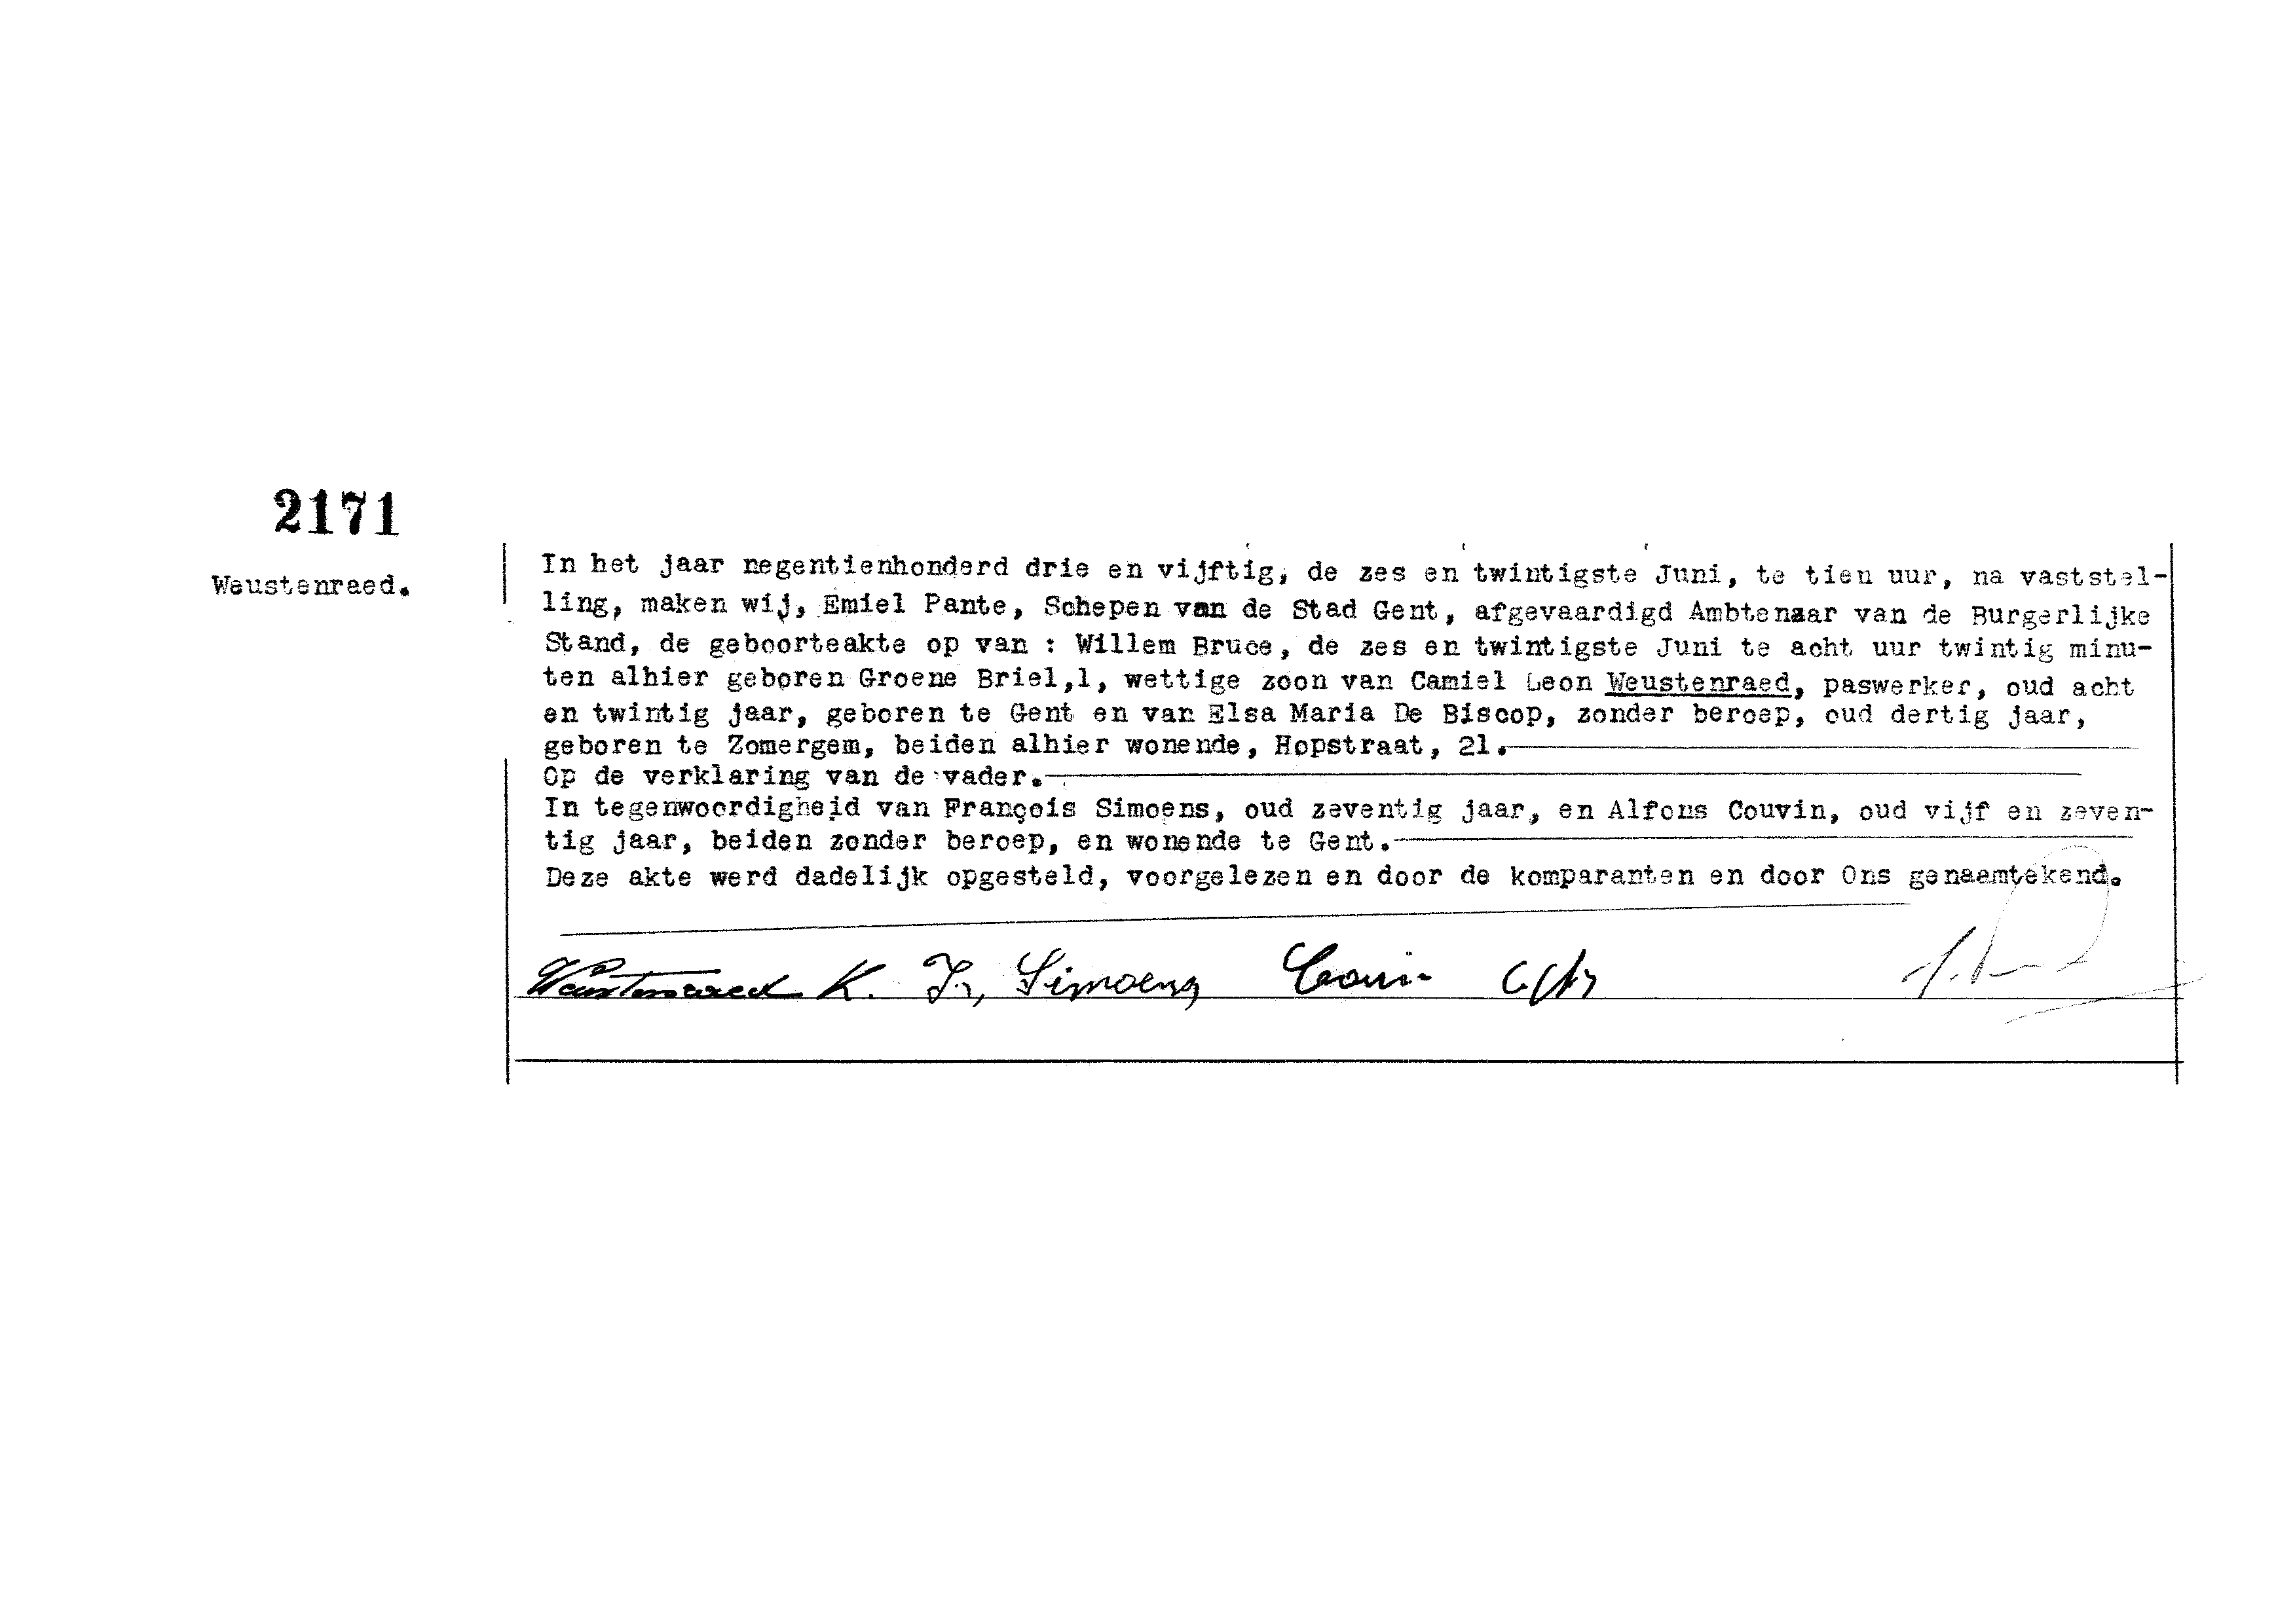 2171
Weustenraed.
In het jaar negentienhonderd drie en vijftig, de zes en twintigste Juni, te tien uur, na vaststel-
ling, maken wij, Emiel Pante, Schepen van de Stad Gent, afgevaardigd Ambtenaar van de Burgerlijke
Stand, de geboorteakte op van : Willem Bruce, de zes en twintigste Juni te acht uur twintig minu-
ten alhier geboren Groene Briel,1, wettige zoon van Camiel Leon Weustenraed, paswerker, oud acht
en twintig jaar, geboren te Gent en van Elsa Maria De Biscop, zonder beroep, oud dertig jaar,
geboren te Zomergem, beiden alhier wonende, Hopstraat, 21.
Op de verklaring van de vader.
In tegenwoordigheid van François Simoens, oud zeventig jaar, en Alfons Couvin, oud vijf en zeven-
tig jaar, beiden zonder beroep, en wonende te Gent.
Deze akte werd dadelijk opgesteld, voorgelezen en door de komparanten en door Ons genaamtekend.
Weustenraed K. Fr, Simoens